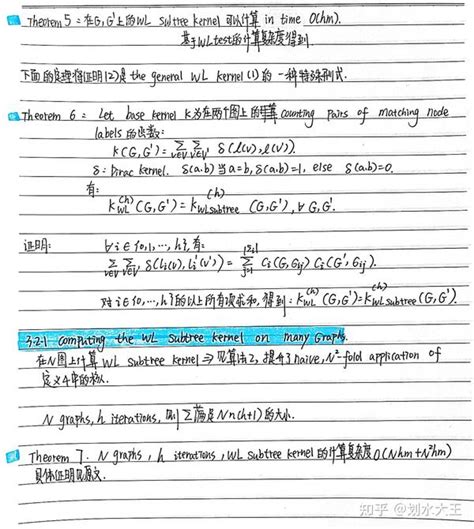 Theorem 5: 在G,G'上的WL subtree kernel 可以计算 in time O(hm).
基于WL test的计算复杂度得到.
下面的定理将证明(2)是 the general WL kernel (1) 的 一种特殊形式.
Theorem 6: Let base kernel k 为在两个图上的 counting pairs of matching node
labels 的函数:
k(G,G') = Σ_{v∈V} Σ_{v'∈V'} δ(l(v), l(v')).
δ: Dirac kernel. δ(a,b) 当 a=b, δ(a,b)=1, else δ(a,b)=0.
有:
k_{WL}^{(h)}(G,G') = k_{WLsubtree}^{(h)}(G,G'), ∀ G,G'.
证明: ∀ i∈{0,1,…,h}, 有:
Σ_{v∈V} Σ_{v'∈V'} δ(l_i(v), l_i'(v')) = Σ_{j=1}^{|Σ_i|} C_i(G,σ_{ij}) C_i(G',σ_{ij}).
对 i∈{0,…,h}的以上所有项求和, 得到: k_{WL}^{(h)}(G,G') = k_{WLsubtree}^{(h)}(G,G').
3.2.1 Computing the WL Subtree kernel on many Graphs.
在N图上计算 WL Subtree kernel ⇒ 见算法2, 提升了naive, N²-fold application of
定义4中的
N graphs, h iterations, 则 Σ 是 Nn(h+1)的大小.
Theorem 7. N graphs, h iterations, WL subtree kernel 的计算复杂度 O(Nhm+N²hn)
具体证明见原文.
知乎 @划水大王